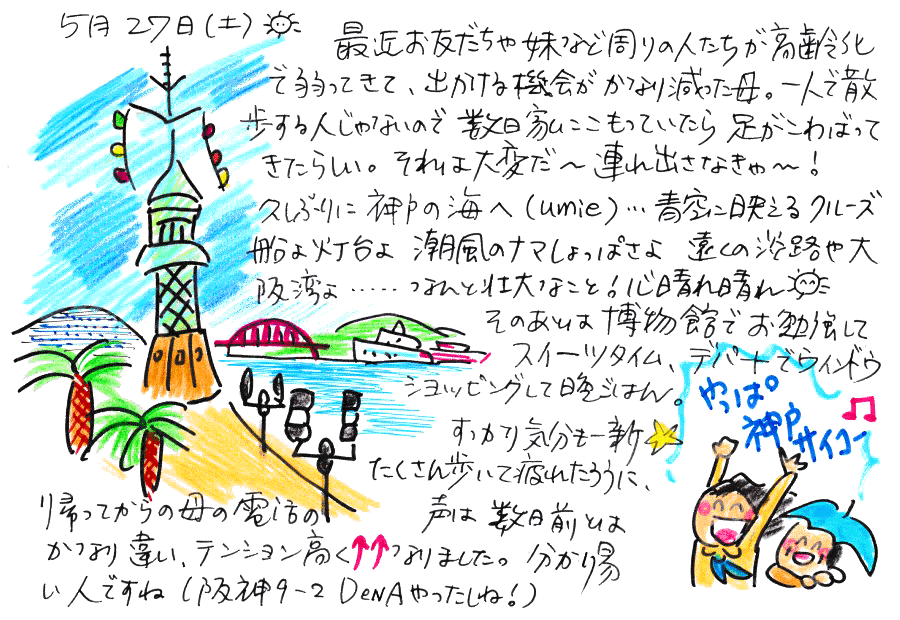 5月27日(土)
最近お友だちや妹など周りの人たちが高齢化
で弱ってきて、出かける機会がかなり減った母。一人で散
歩する人じゃないので数日家にこもっていたら足がこわばって
きたらしい。それは大変だ〜連れ出さなきゃ〜！
久しぶりに神戸の海へ(umie)…青空に映えるクルーズ
船よ灯台よ潮風のナマしょっぱさよ 遠くの淡路や大
阪湾よ……なんと壮大なこと！心晴れ晴れ
そのあとは博物館でお勉強して
スイーツタイム、デパートでウィンドウ
ショッピングして晩ごはん。
すっかり気分も一新
たくさん歩いて疲れたろうに、
帰ってからの母の電話の声は数日前とは
かなり違い、テンション高く↑↑なりました。分かり易
い人ですね(阪神9-2 DeNAやったしね！)
やっぱ
神戸
サイコー